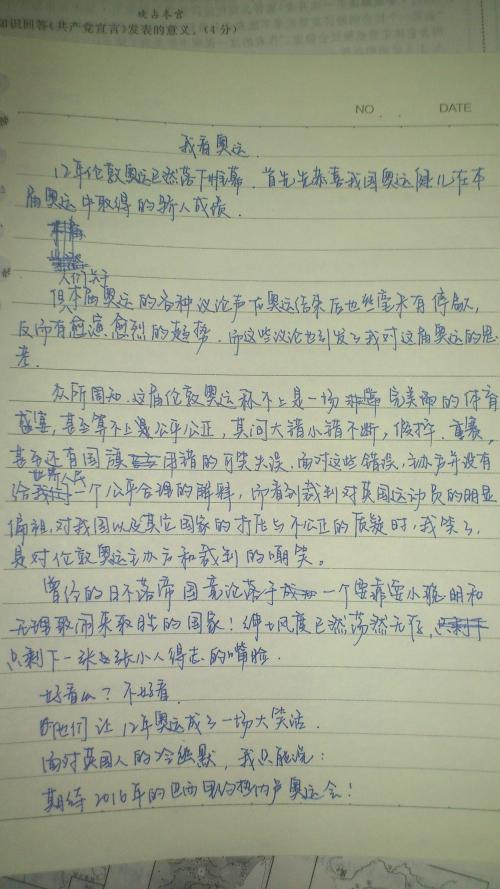 知识回答《共产党宣言》发表的意义。(4分)
NO . . DATE
我看奥运.
12年伦敦奥运已然落下帷幕.首先先恭喜我国奥运健儿在本
届奥运中取得的骄人成绩.
人们关于
但本届奥运的各种议论声在奥运结束后也丝毫未有停歇,
反而有愈演愈烈的趋势.而这些议论也引发了我对这届奥运的思
考.
众所周知.这届伦敦奥运称不上是一场完美的体育
盛宴,甚至算不上是公平公正,其间大错小错不断,假摔.重赛,
甚至还有国旗用错的可笑失误.面对这些错误,主办方并没有
世界人民
给一个公平合理的解释,而看到裁判对英国运动员的明显
偏袒,对我国以及其它国家的打压与不公正的质疑时,我笑了,
是对伦敦奥运主办方和裁判的嘲笑。
曾经的日不落帝国竟沦落于一个要靠耍小聪明和
无理取闹来取胜的国家!绅士风度已然荡然无存,
只剩下一张小人得志的嘴脸.
好看么?不好看.
他们让12年奥运成了一场大笑话.
面对英国人的冷幽默,我只能说:
期待2016年的巴西里约热内卢奥运会!